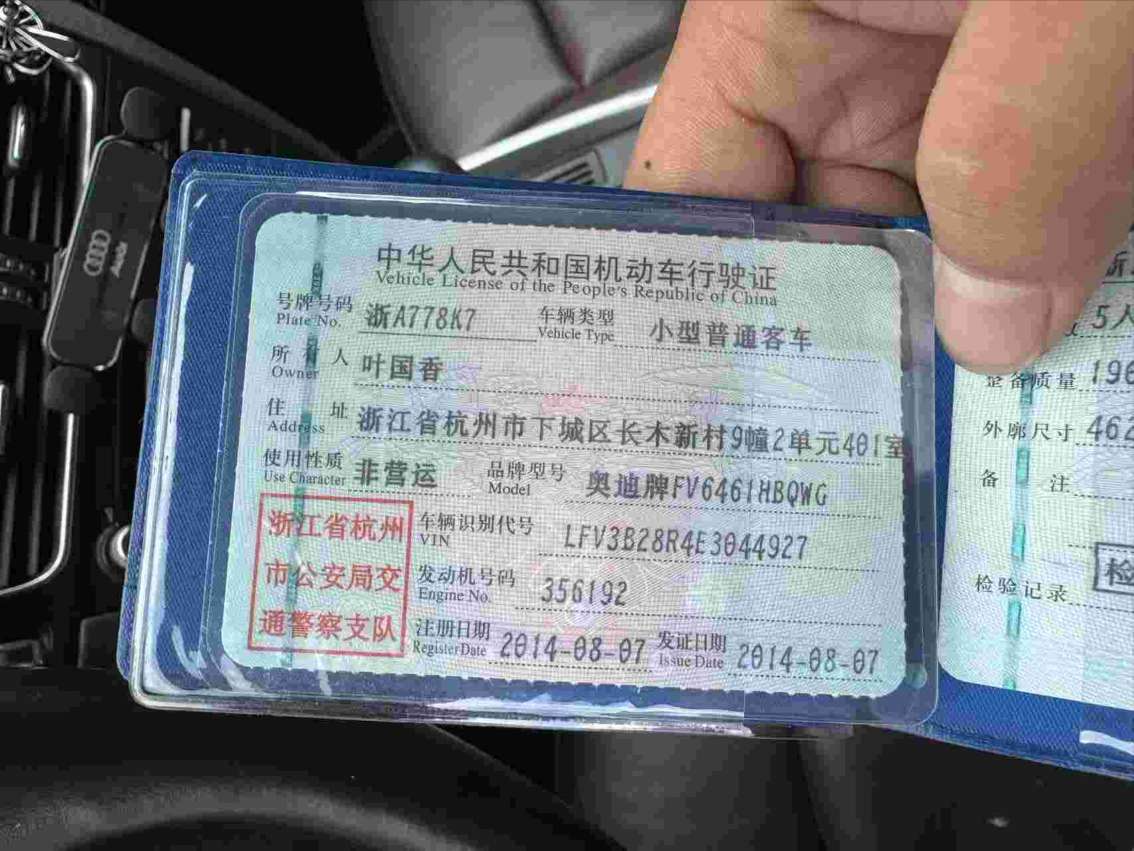 中华人民共和国机动车行驶证
Vehicle License of the People's Republic of China
号牌号码 浙A778K7 车辆类型 小型普通客车
Plate No. Vehicle Type
所有人 叶国香
Owner
住址 浙江省杭州市下城区长木新村9幢2单元401室
Address
使用性质 非营运 品牌型号 奥迪牌FV6461HBQWG
Use Character Model
浙江省杭州
市公安局交
通警察支队
车辆识别代号 LFV3B28R4E3044927
VIN
发动机号码 356192
Engine No.
注册日期 2014-08-07 发证日期 2014-08-07
Register Date Issue Date
5人
整备质量 196
外廓尺寸 462
备注
检验记录 检
Audi